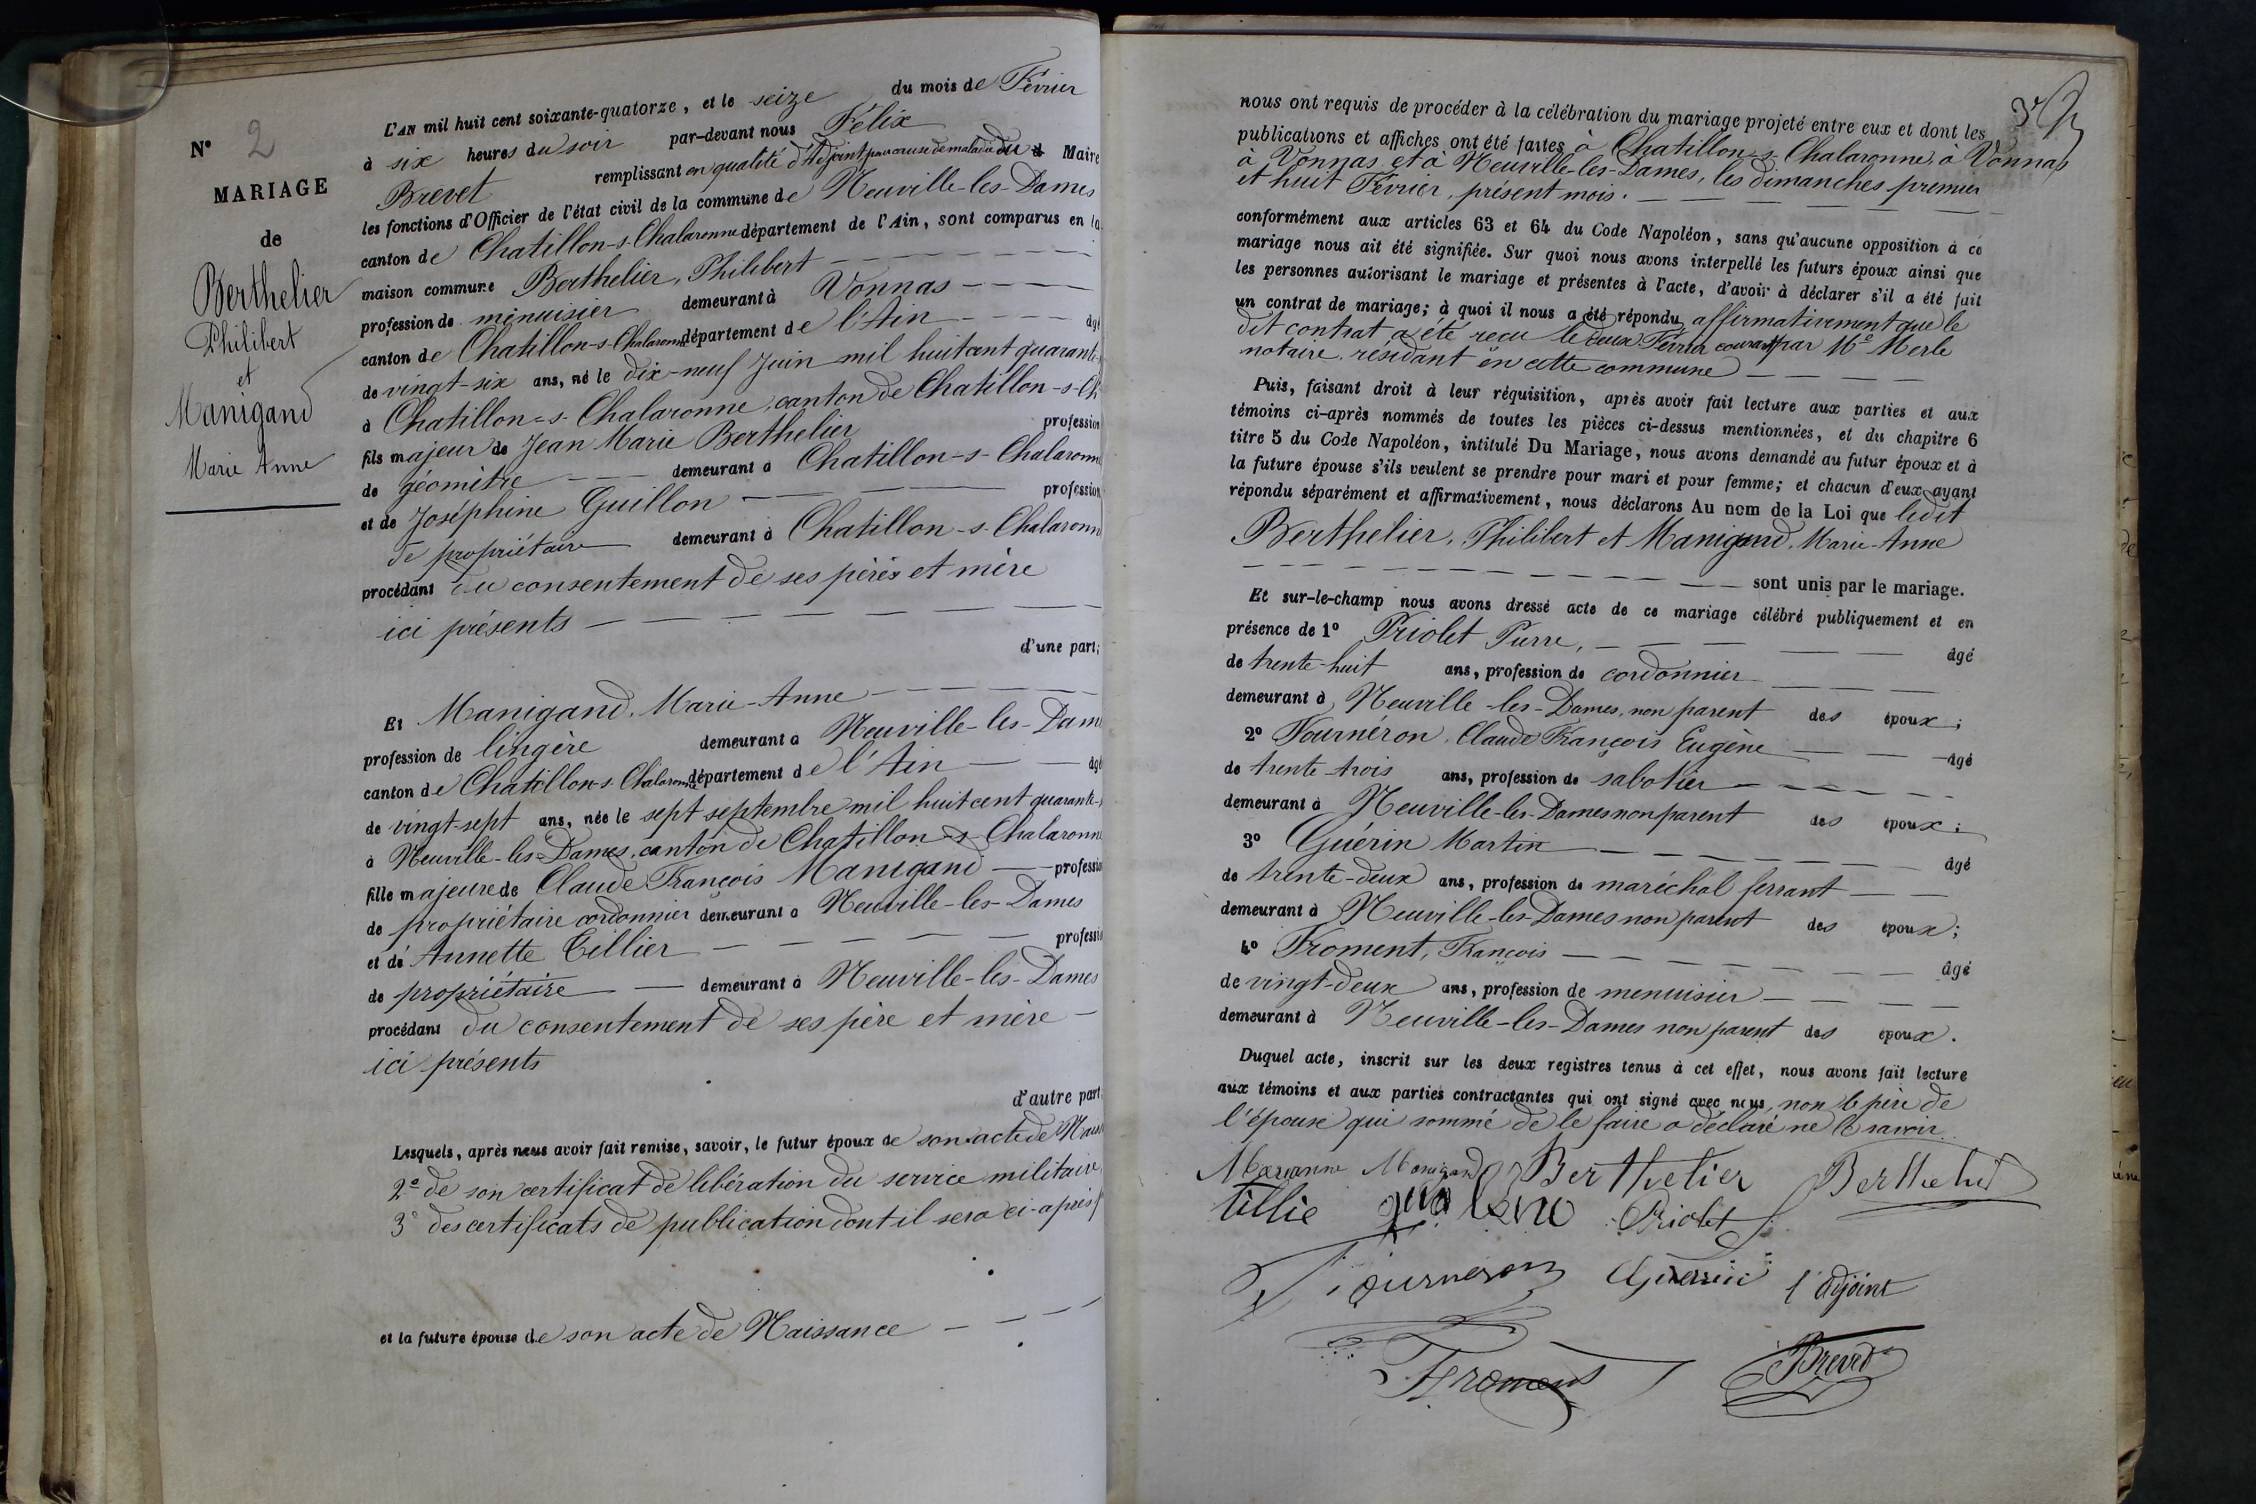 N° 2
MARIAGE
de
Berthelier
Philibert
et
Manigand
Marie Anne
L'AN mil huit cent soixante-quatorze, et le seize du mois de Février
à six heures du soir par-devant nous Félix
Brevet remplissant en qualité d'Adjoint pour cause de maladie du Maire
les fonctions d'Officier de l'état civil de la commune de Neuville-les-Dames
canton de Chatillon-s-Chalaronne département de l'Ain, sont comparus en la
maison commune Berthelier, Philibert
profession de menuisier demeurant à Vonnas
canton de Chatillon-s-Chalaronne département de l'Ain âgé
de vingt-six ans, né le dix-neuf Juin mil huit cent quarante-
à Chatillon-s-Chalaronne, canton de Chatillon-s-Ch
fils majeur de Jean Marie Berthelier profession
de géomètre demeurant à Chatillon-s-Chalaronne
et de Joséphine Guillon profession
de propriétaire demeurant à Chatillon-s-Chalaronne
procédant du consentement de ses pères et mère
ici présents
d'une part;
Et Manigand, Marie-Anne
profession de lingère demeurant à Neuville-les-Dam
canton de Chatillon-s-Chalaronne département de l'Ain âgé
de vingt-sept ans, née le sept septembre mil huit cent quarante-
à Neuville-les-Dames, canton de Chatillon-s-Chalaronne
fille majeure de Claude François Manigand profession
de propriétaire cordonnier demeurant à Neuville-les-Dames
et de Annette Tillier profession
de propriétaire demeurant à Neuville-les-Dames
procédant du consentement de ses père et mère
ici présents
d'autre part.
Lesquels, après nous avoir fait remise, savoir, le futur époux de son acte de Naiss
2° de son certificat de libération du service militaire
3° des certificats de publication dont il sera ci-après
et la future épouse de son acte de Naissance
nous ont requis de procéder à la célébration du mariage projeté entre eux et dont les
publications et affiches ont été faites à Chatillon-s-Chalaronne, à Vonnas
à Vonnas et à Neuville-les-Dames, les dimanches premier
et huit Février, présent mois.
conformément aux articles 63 et 64 du Code Napoléon, sans qu'aucune opposition à ce
mariage nous ait été signifiée. Sur quoi nous avons interpellé les futurs époux ainsi que
les personnes autorisant le mariage et présentes à l'acte, d'avoir à déclarer s'il a été fait
un contrat de mariage; à quoi il nous a été répondu affirmativement que le
dit contrat a été reçu le deux Février courant par Me Merle
notaire, résidant en cette commune
Puis, faisant droit à leur réquisition, après avoir fait lecture aux parties et aux
témoins ci-après nommés de toutes les pièces ci-dessus mentionnées, et du chapitre 6
titre 5 du Code Napoléon, intitulé Du Mariage, nous avons demandé au futur époux et à
la future épouse s'ils veulent se prendre pour mari et pour femme; et chacun d'eux ayant
répondu séparément et affirmativement, nous déclarons Au nom de la Loi que ledit
Berthelier, Philibert et Manigand, Marie-Anne
sont unis par le mariage.
Et sur-le-champ nous avons dressé acte de ce mariage célébré publiquement et en
présence de 1° Priolet Pierre, âgé
de trente-huit ans, profession de cordonnier
demeurant à Neuville-les-Dames, non parent des époux;
2° Fournéron, Claude François Eugène âgé
de trente-trois ans, profession de sabotier
demeurant à Neuville-les-Dames non parent des époux;
3° Guérin Martin âgé
de trente-deux ans, profession de maréchal ferrant
demeurant à Neuville-les-Dames non parent des époux;
4° Froment, François âgé
de vingt-deux ans, profession de menuisier
demeurant à Neuville-les-Dames non parent des époux.
Duquel acte, inscrit sur les deux registres tenus à cet effet, nous avons fait lecture
aux témoins et aux parties contractantes qui ont signé avec nous, non le père de
l'épouse qui sommé de le faire a déclaré ne le savoir.
Marianne Manigand Berthelier Berthelier
tillie Priolet
Fourneron Guérin l'adjoint
Froment Brevet